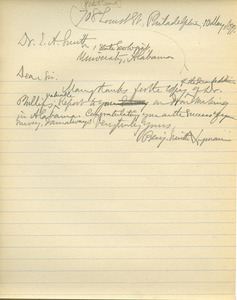 708 Locust St., Philadelphia, 10 May,
Dr. E. A. Smith,
State Geologist,
University, Alabama
Dear Sir:
Many thanks for the copy of Dr.
Phillips' valuable Report to you on Iron Making
in Alabama. Congratulating you on the success of your
Survey, I am always
Very truly yours,
Benj. Smith Lyman